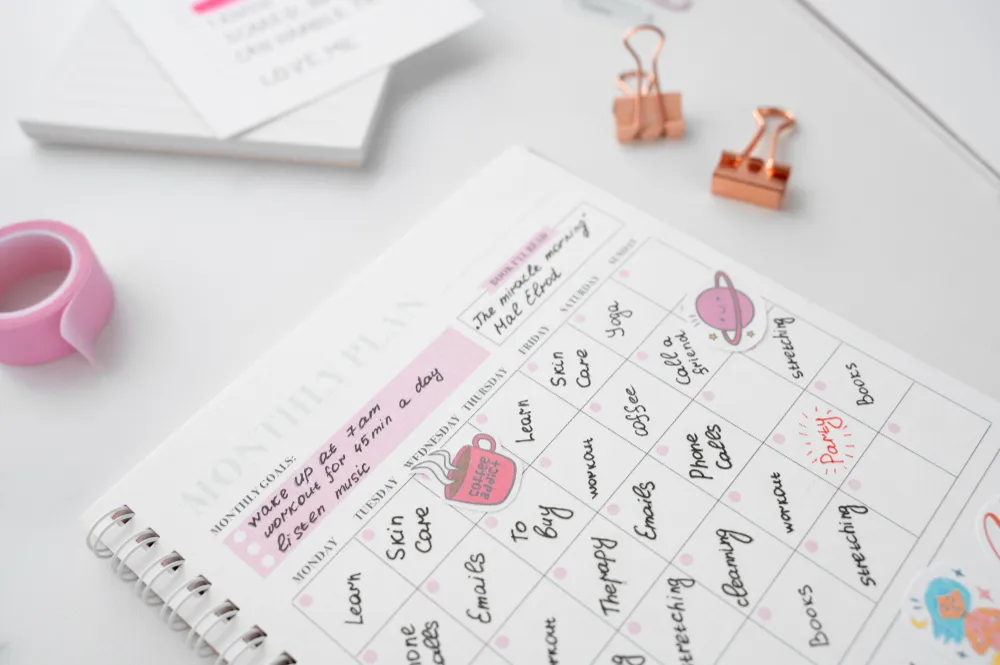 LOVE ME
MONTHLY PLAN
BOOK I'LL READ
"The miracle morning"
Mal Elrod
MONTHLY GOALS:
wake up at 7am
workout for 45 min a day
listen music
MONDAY TUESDAY WEDNESDAY THURSDAY FRIDAY SATURDAY SUNDAY
Learn
Skin
Care
coffee
addict
Learn
Skin
Care
Yoga
Emails
To
Buy
workout
coffee
Call a
friend
Thepapy
Emails
Phone
Calls
stretching
cleaning
workout
Party
Books
Books
stretching